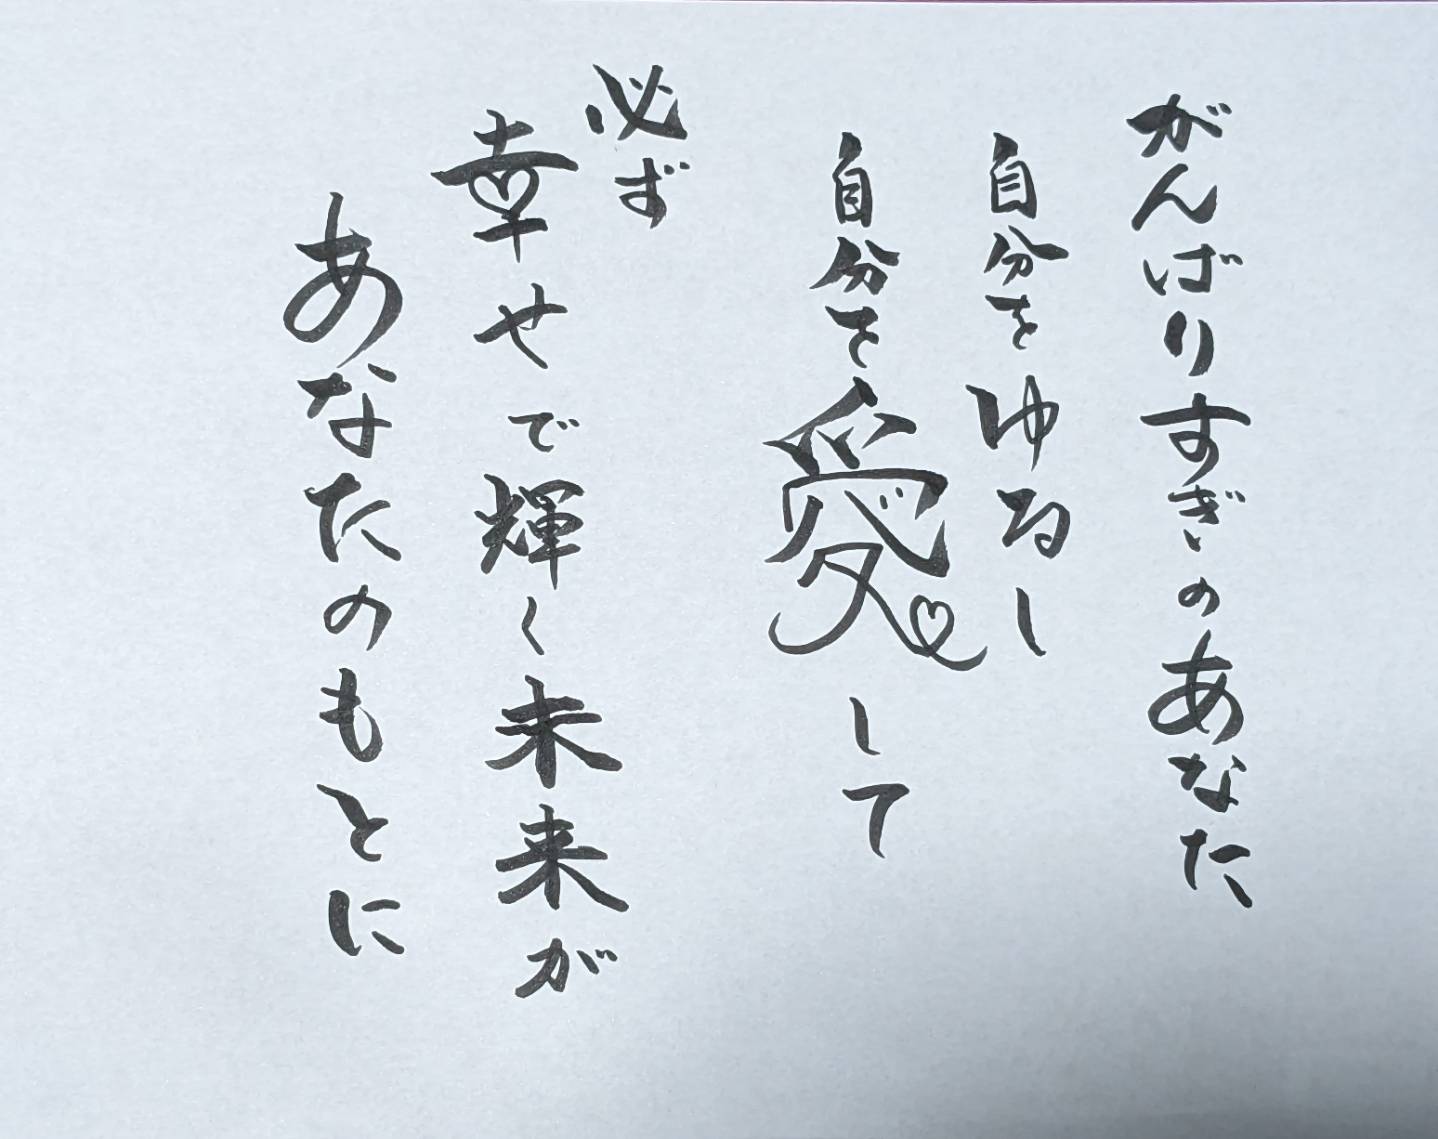 がんばりすぎのあなた
自分をゆるし
自分を愛して
必ず
幸せで輝く未来が
あなたのもとに